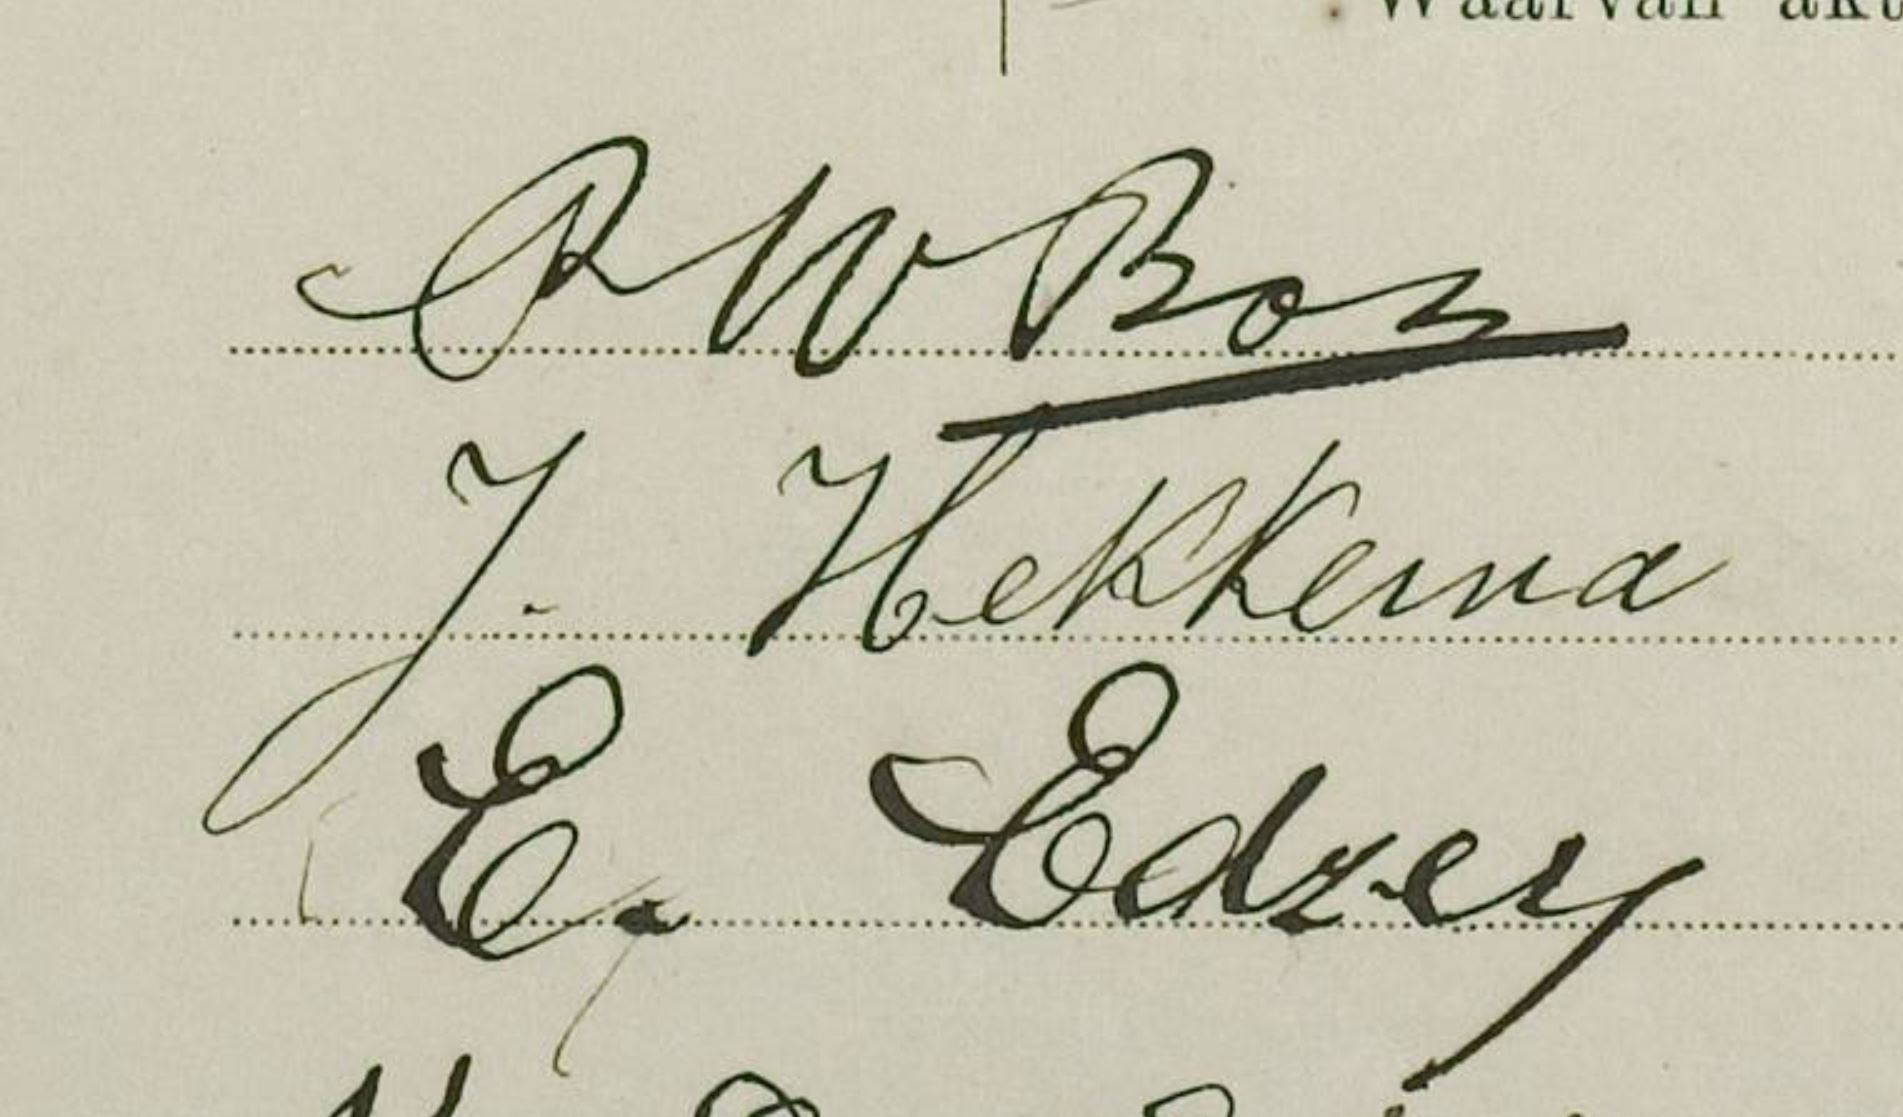 Waarvan
R W Bos
J. Hekkema
E. Edzey